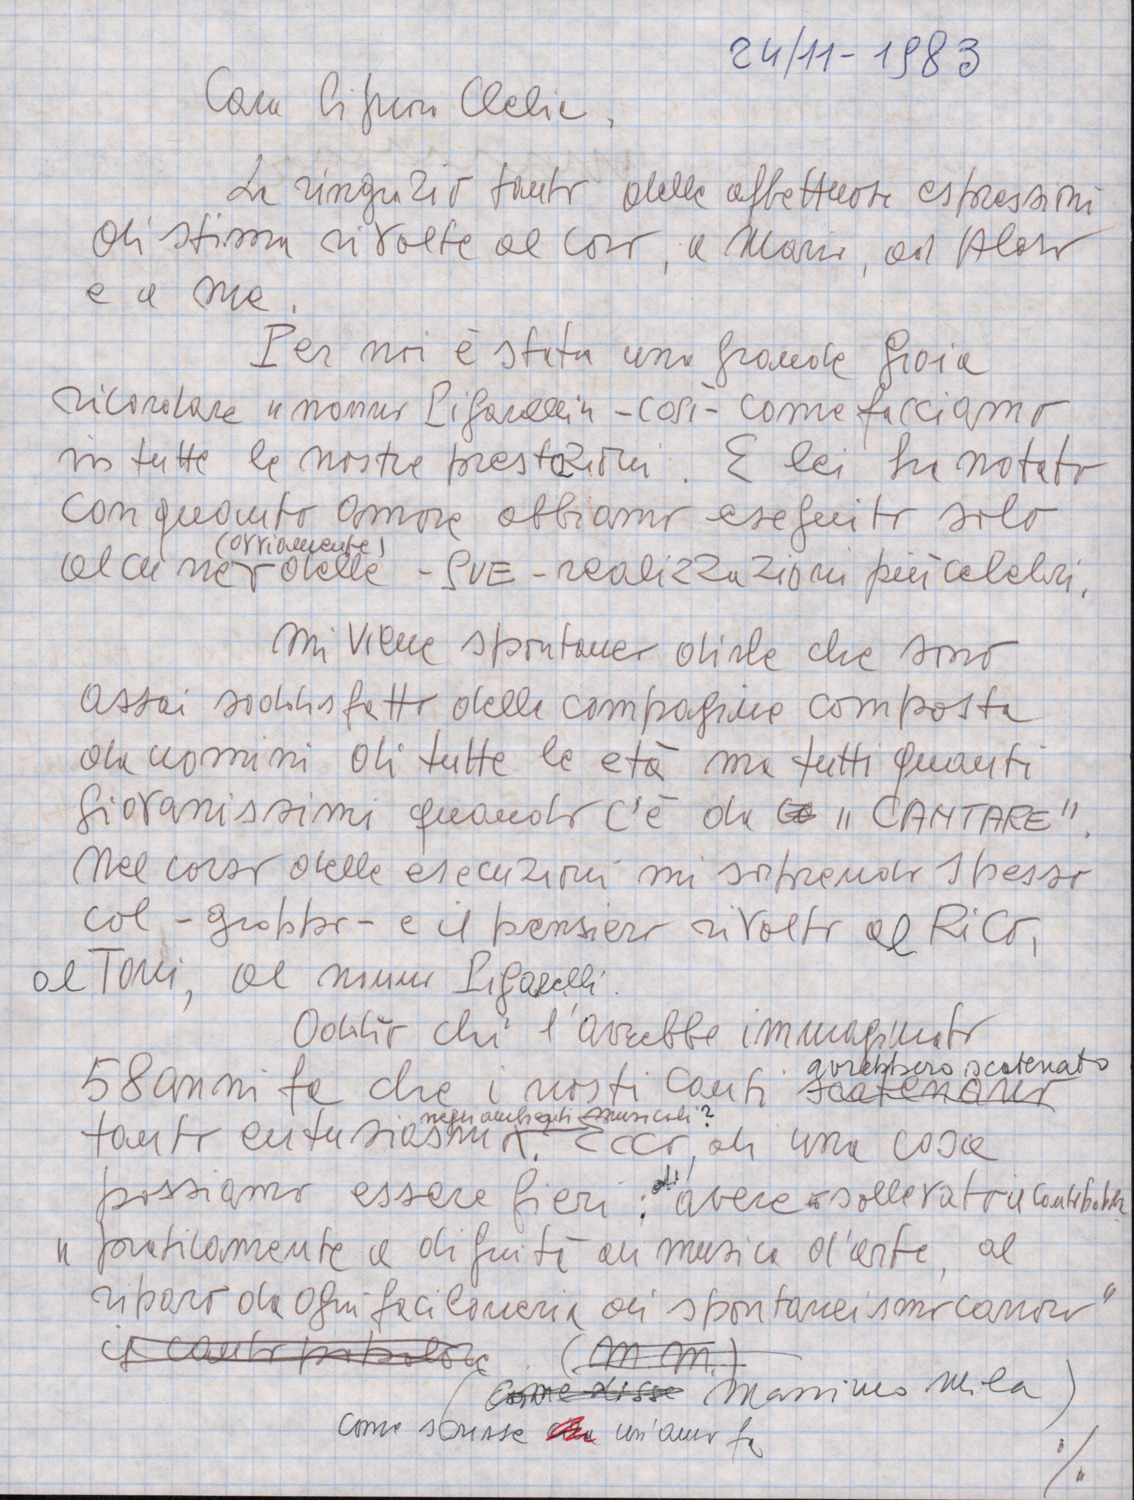 24/11-1983
Cara Signora Clelia,
La ringrazio tanto delle affettuose espressioni
di stima rivolte al coro, a Mario, ad Aldo
e a me.
Per noi è stata una grande gioia
ricordare "nonno Pigarelli" - così - come facciamo
in tutte le nostre prestazioni. E lei ha notato
con quanto amore abbiamo eseguito solo
(ovviamente)
alcune delle - SUE - realizzazioni più celebri.
Mi viene spontaneo dirle che sono
assai soddisfatto della compagine composta
da uomini di tutte le età ma tutti quanti
giovanissimi quando c'è da "CANTARE".
Nel corso delle esecuzioni mi soprendo spesso
col - groppo - e il pensiero rivolto al Rico,
al Toni, al nonno Pigarelli.
Oddio chi l'avrebbe immaginato
avrebbero scatenato
58 anni fa che i nosti canti scatenano
negli ambienti musicali?
tanto entusiasmo. Ecco, di una cosa
possiamo essere fieri: di avere sollevato il canto popolare
" praticamente a dignità di musica d'arte, al
riparo da ogni faciloneria di spontaneismo canoro"
il canto popolare (M M.)
(come disse Massimo Mila)
come scrisse un'anno fa
./.